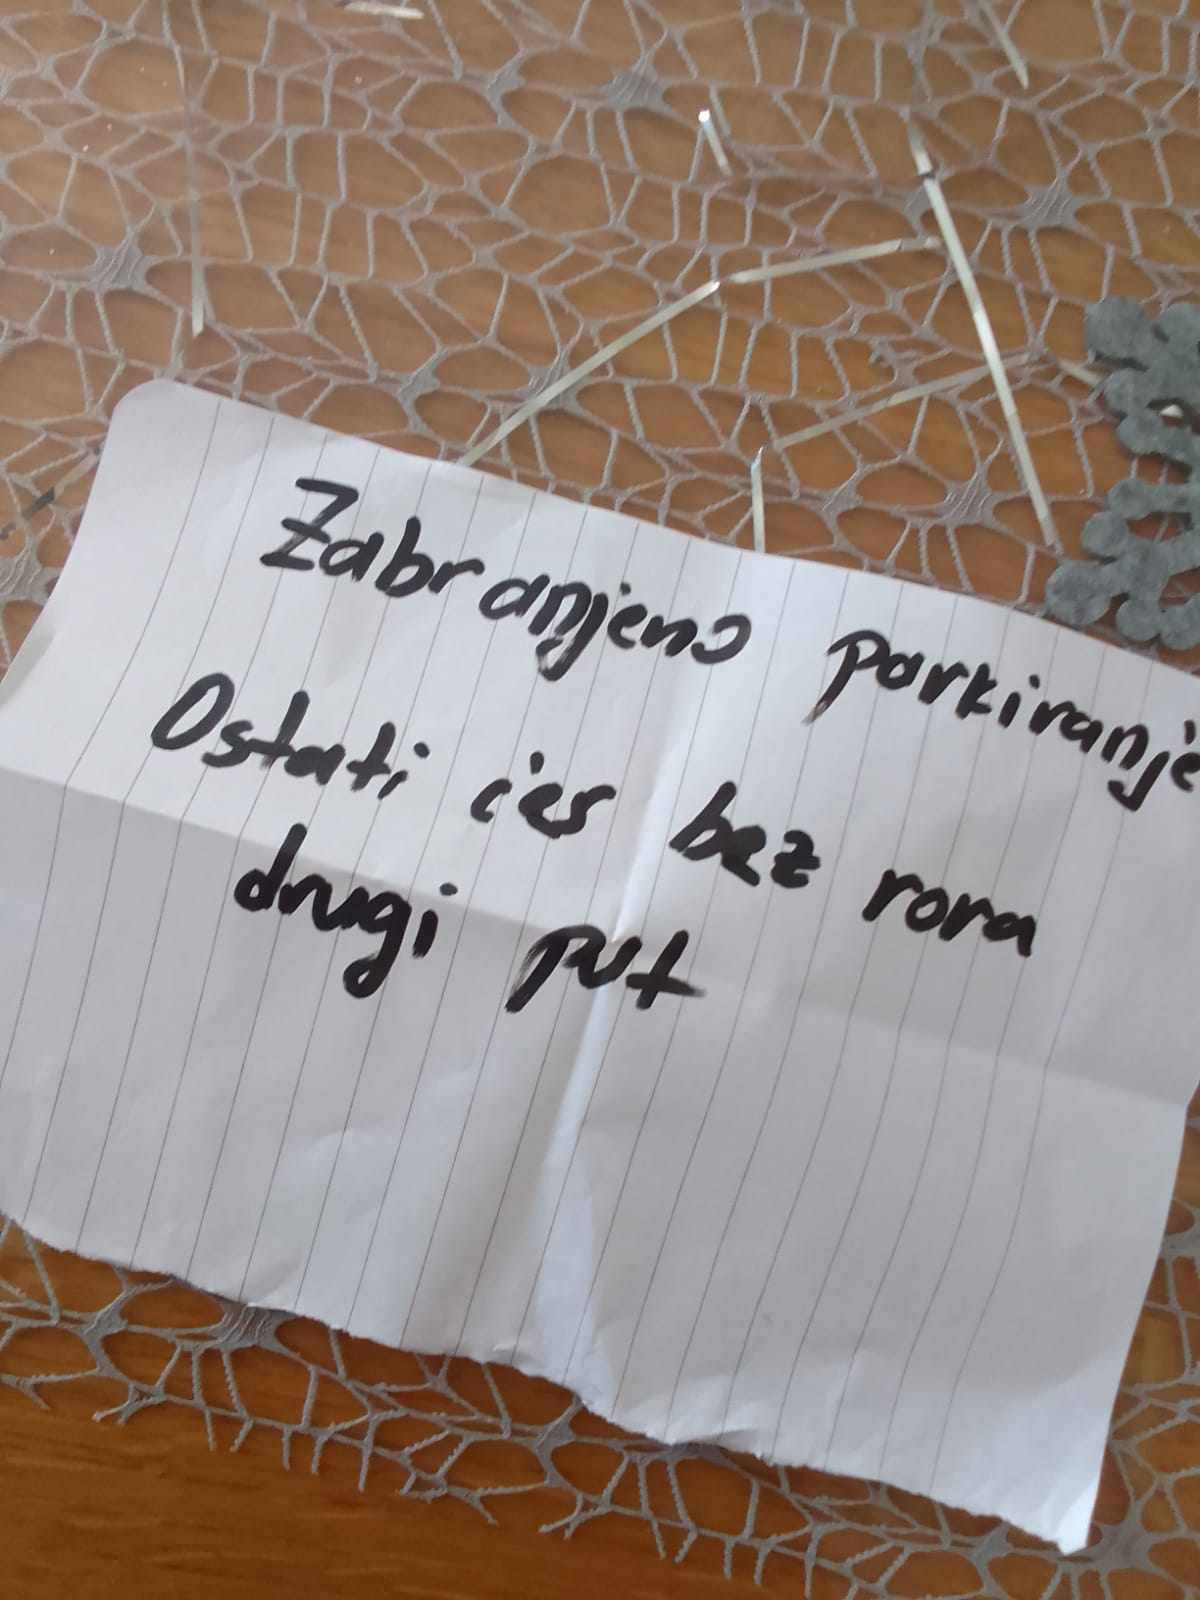 Zabranjeno parkiranje
Ostati ćeš bez rora
drugi put